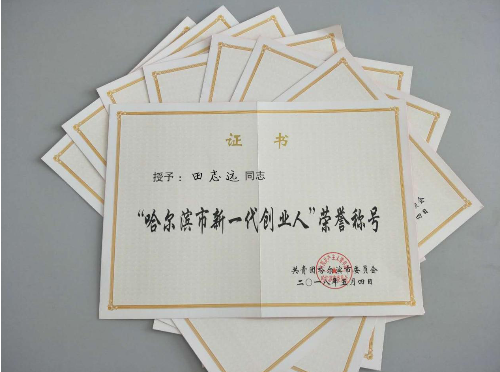 证 书
授予：田志远 同志
“哈尔滨市新一代创业人”荣誉称号
共青团哈尔滨市委员会
二〇一八年五月四日
员会
四日